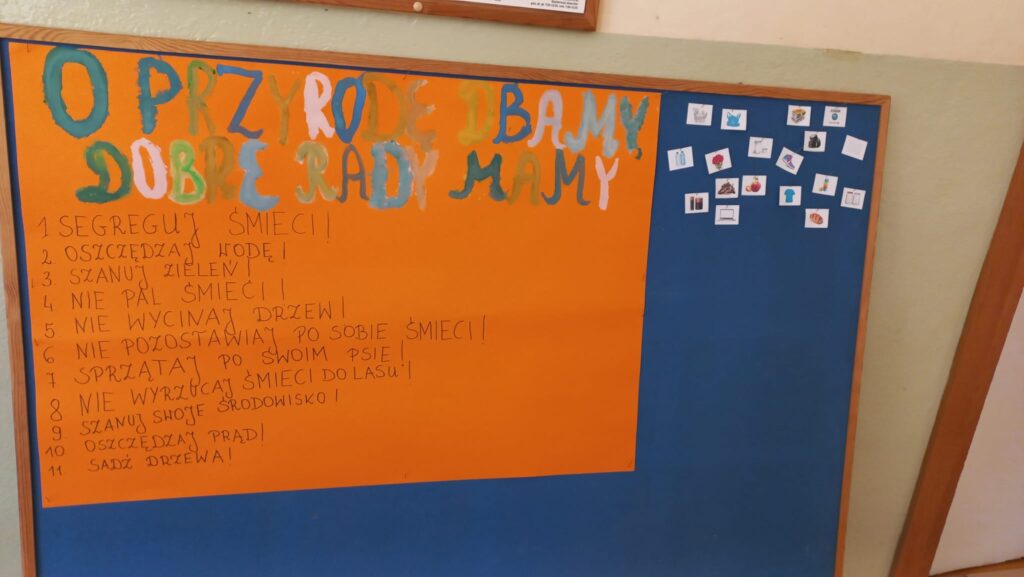 O PRZYRODĘ DBAMY,
DOBRE RADY MAMY
1 SEGREGUJ ŚMIECI!
2. OSZCZĘDZAJ WODĘ!
3. SZANUJ ZIELEŃ!
4 NIE PAL ŚMIECI!
5 NIE WYCINAJ DRZEW!
6 NIE POZOSTAWIAJ PO SOBIE ŚMIECI!
7 SPRZĄTAJ PO SWOIM PSIE!
8 NIE WYRZUCAJ ŚMIECI DO LASU!
9. SZANUJ SWOJE ŚRODOWISKO!
10 OSZCZĘDZAJ PRĄD!
11 SADŹ DRZEWA!